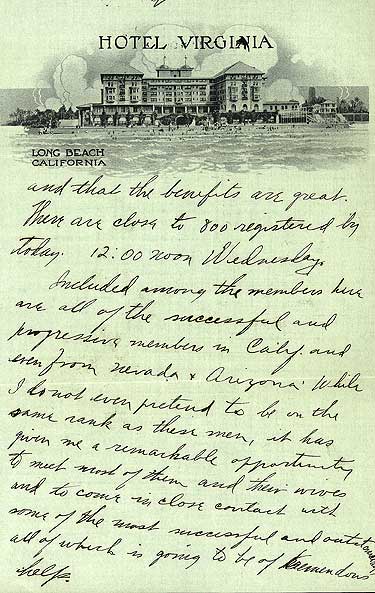 HOTEL VIRGINIA
LONG BEACH
CALIFORNIA
and that the benefits are great.
There are close to 800 registered by
today. 12:00 noon Wednesday.
Included among the members here
are all of the successful and
progressive members in Calif. and
even from Nevada & Arizona. While
I do not even pretend to be on the
same rank as these men, it has
given me a remarkable opportunity
to meet most of them and their wives
and to come in close contact with
some of the most successful and outstanding
all of which is going to be of tremendous
help.